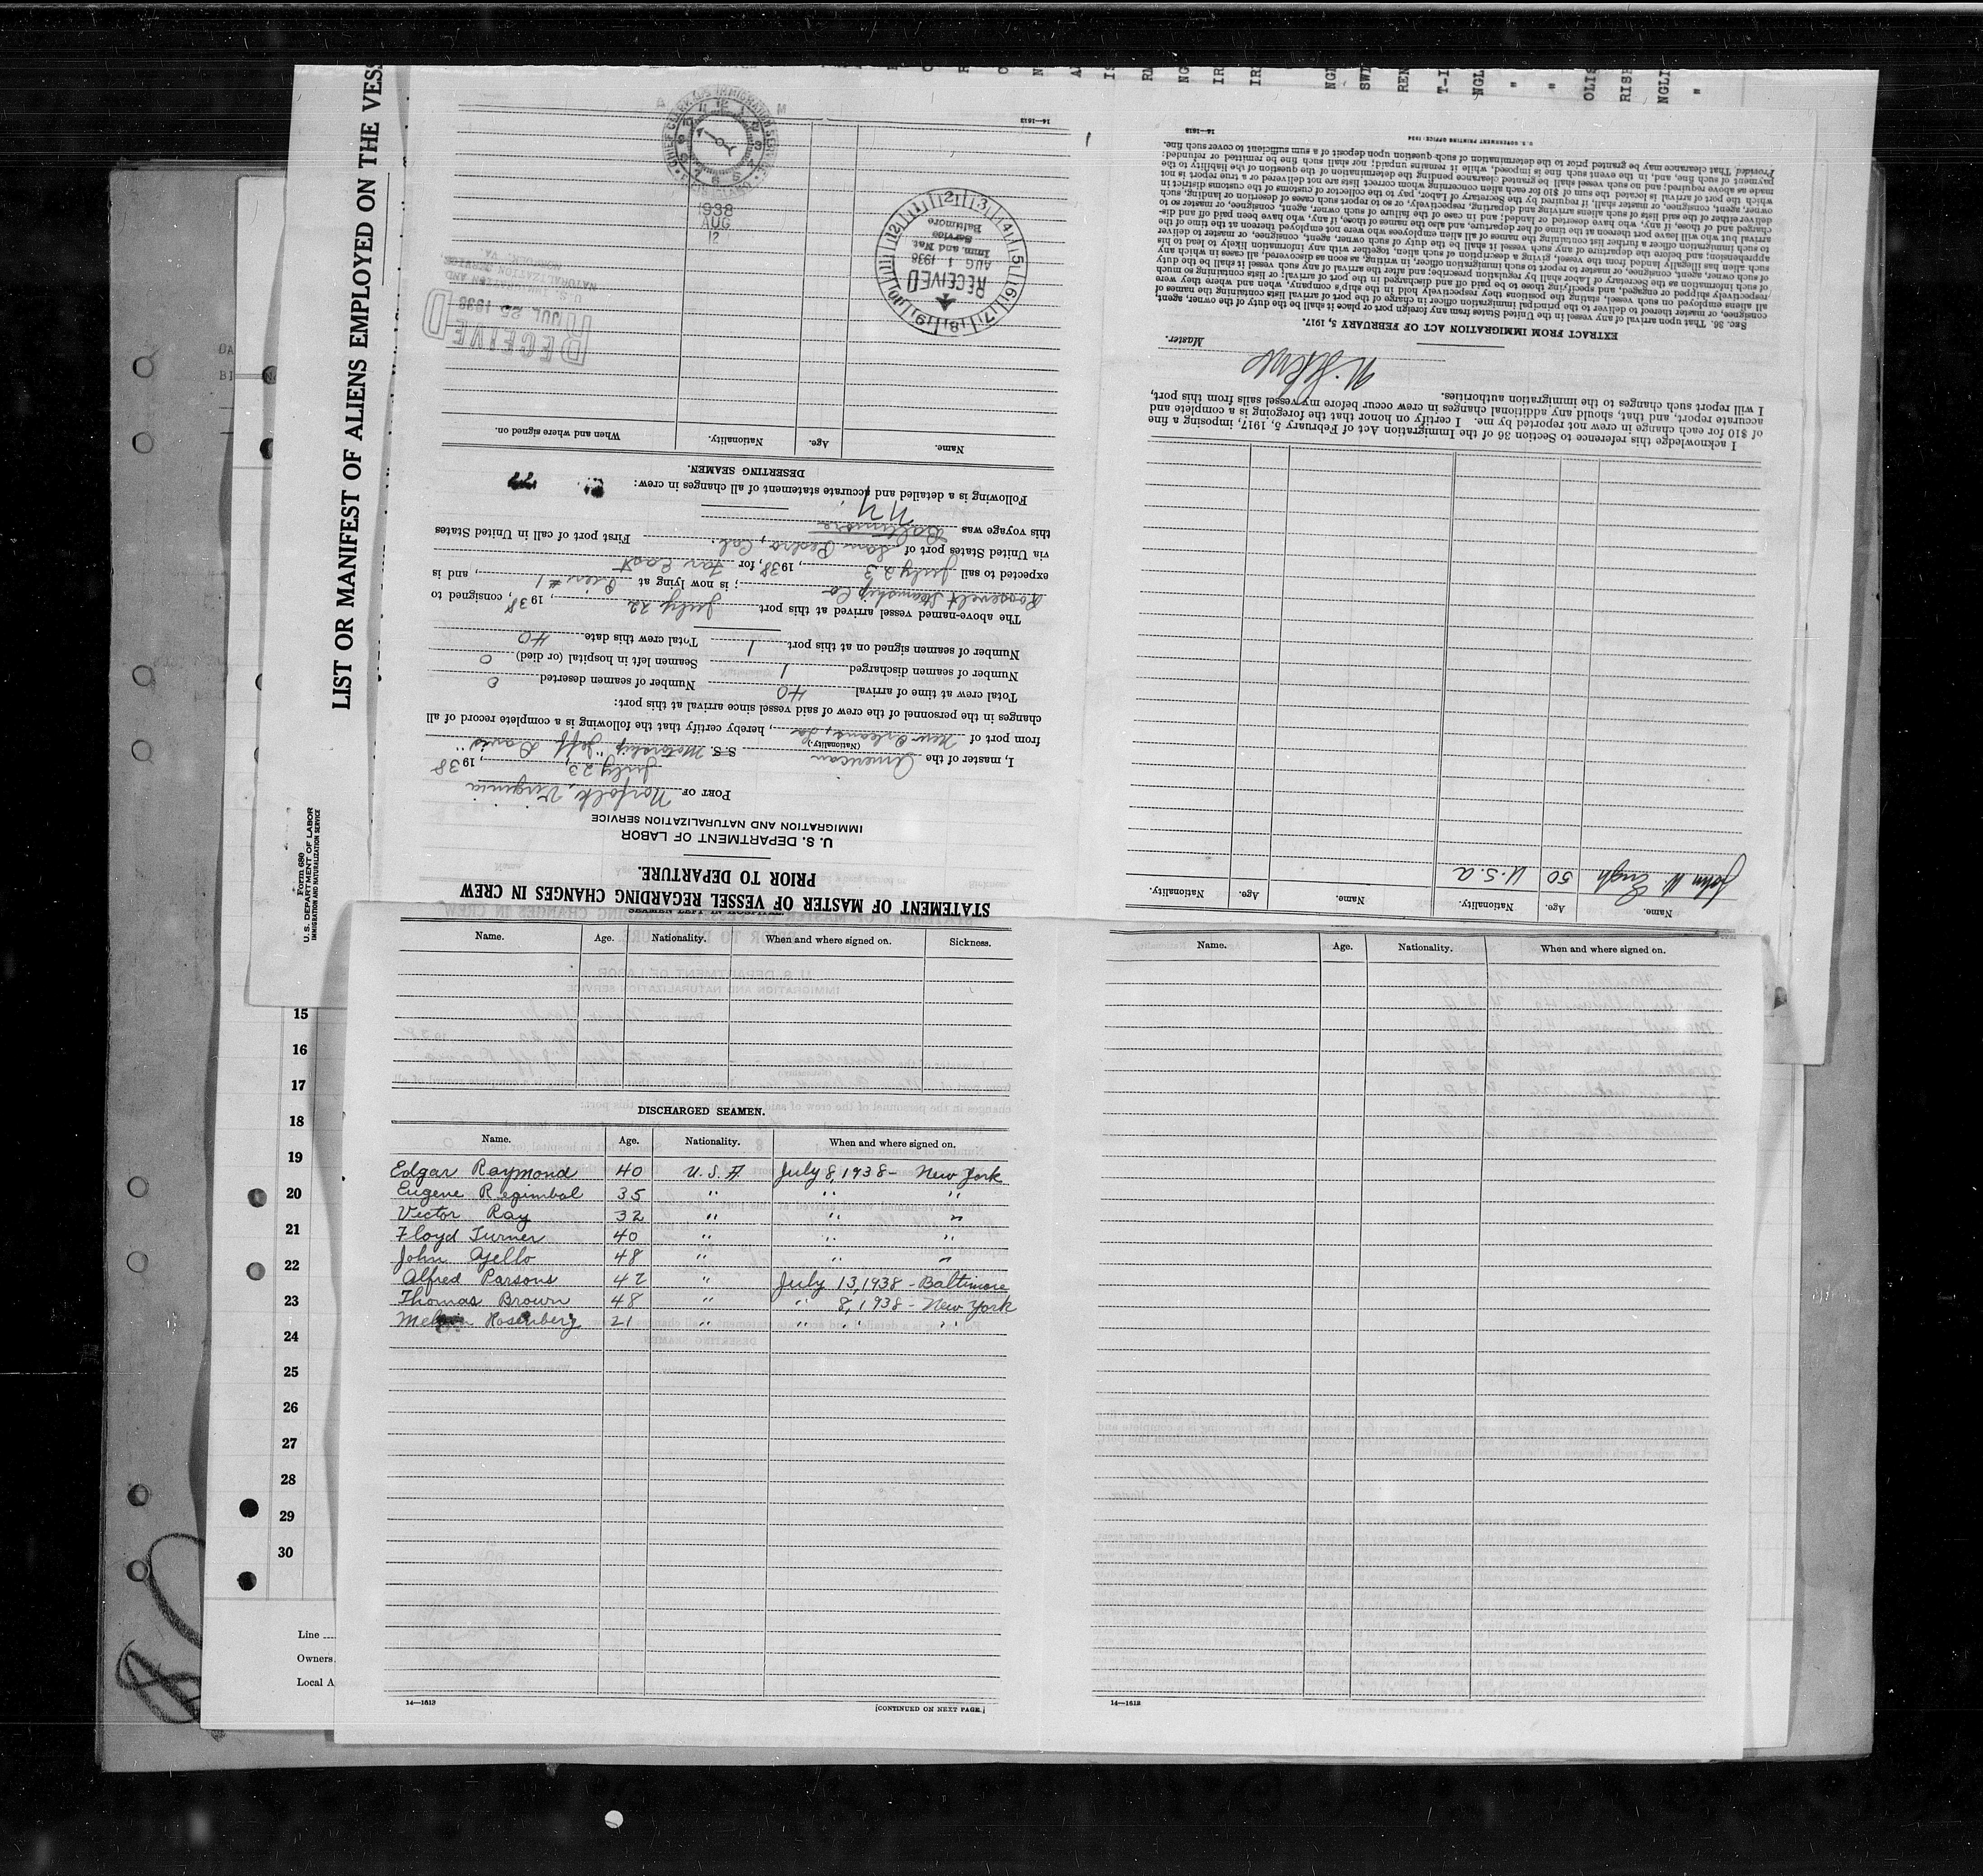 LIST OR MANIFEST OF ALIENS EMPLOYED ON THE VESS
Form 680
U.S. DEPARTMENT OF LABOR
IMMIGRATION AND NATURALIZATION SERVICE
STATEMENT OF MASTER OF VESSEL REGARDING CHANGES IN CREW
PRIOR TO DEPARTURE.
U. S. DEPARTMENT OF LABOR
IMMIGRATION AND NATURALIZATION SERVICE
PORT OF Norfolk, Virginia
July 23, 1938
I, master of the American S.S. Motorship "Jeff Davis"
(Nationality)
from port of New Orleans, La, hereby certify that the following is a complete record of all
changes in the personnel of the crew of said vessel since arrival at this port:
Total crew at time of arrival 40 Number of seamen deserted 0
Number of seamen discharged 1 Seamen left in hospital (or died) 0
Number of seamen signed on at this port 1 Total crew this date 40
The above-named vessel arrived at this port July 22, 1938, consigned to
Roosevelt Steamship Co; is now lying at Pier #1, and is
expected to sail July 23, 1938, for Far East
via United States port of San Pedro, Cal. First port of call in United States
this voyage was Baltimore
N.Y.
Following is a detailed and accurate statement of all changes in crew:
DESERTING SEAMEN.
Name. Age. Nationality. When and where signed on.
RECEIVED
JUL 25 1938
U.S. IMMIGRATION AND
NATURALIZATION SERVICE
NORFOLK, VA.
RECEIVED
AUG 1 1938
Imm and Nat
Service
Baltimore
1938
AUG
12
14—1613
Name. Age. Nationality. Name. Age. Nationality.
John W. Engh 50 U.S.A
I acknowledge this reference to Section 36 of the Immigration Act of February 5, 1917, imposing a fine
of $10 for each change in crew not reported by me. I certify on honor that the foregoing is a complete and
accurate report, and that, should any additional changes in crew occur before my vessel sails from this port,
I will report such changes to the immigration authorities.
Master.
EXTRACT FROM IMMIGRATION ACT OF FEBRUARY 5, 1917.
Sec. 36. That upon arrival of any vessel in the United States from any foreign port or place it shall be the duty of the owner, agent,
consignee, or master thereof to deliver to the principal immigration officer in charge of the port of arrival lists containing the names of
all aliens employed on such vessel, stating the positions they respectively hold in the ship's company, when and where they were
respectively shipped or engaged, and specifying those to be paid off and discharged in the port of arrival; or lists containing so much
of such information as the Secretary of Labor shall by regulation prescribe; and after the arrival of any such vessel it shall be the duty
of such owner, agent, consignee, or master to report to such immigration officer, in writing, as soon as discovered, all cases in which any
such alien has illegally landed from the vessel, giving a description of such alien, together with any information likely to lead to his
apprehension; and before the departure of any such vessel it shall be the duty of such owner, agent, consignee, or master to deliver
to such immigration officer a further list containing the names of all alien employees who were not employed thereon at the time of the
arrival but who will leave port thereon at the time of her departure, and also the names of those, if any, who have been paid off and dis-
charged and of those, if any, who have deserted or landed; and in case of the failure of such owner, agent, consignee, or master so to
deliver either of the said lists of such aliens arriving and departing, respectively, or so to report such cases of desertion or landing, such
owner, agent, consignee, or master shall, if required by the Secretary of Labor, pay to the collector of customs of the customs district in
which the port of arrival is located the sum of $10 for each alien concerning whom correct lists are not delivered or a true report is not
made as above required; and no such vessel shall be granted clearance pending the determination of the question of the liability to the
payment of such fine, and, in the event such fine is imposed, while it remains unpaid; nor shall such fine be remitted or refunded:
Provided, That clearance may be granted prior to the determination of such question upon deposit of a sum sufficient to cover such fine.
14—1613 U. S. GOVERNMENT PRINTING OFFICE: 1934
SEAMEN LEFT IN HOSPITAL.
Name. Age. Nationality. When and where signed on. Sickness.
DISCHARGED SEAMEN.
Name. Age. Nationality. When and where signed on.
Edgar Raymond 40 U.S.A July 8, 1938 - New York
Eugene Regimbal 35 " " "
Vector Ray 32 " " "
Floyd Turner 40 " " "
John Ajello 48 " " "
Alfred Parsons 42 " July 13, 1938 - Baltimore
Thomas Brown 48 " " 8, 1938 - New York
Rosenberg 21 " " " "
14—1613 [CONTINUED ON NEXT PAGE.]
Name. Age. Nationality. When and where signed on.
14—1613
15
16
17
18
19
20
21
22
23
24
25
26
27
28
29
30
Line
Owners
Local A